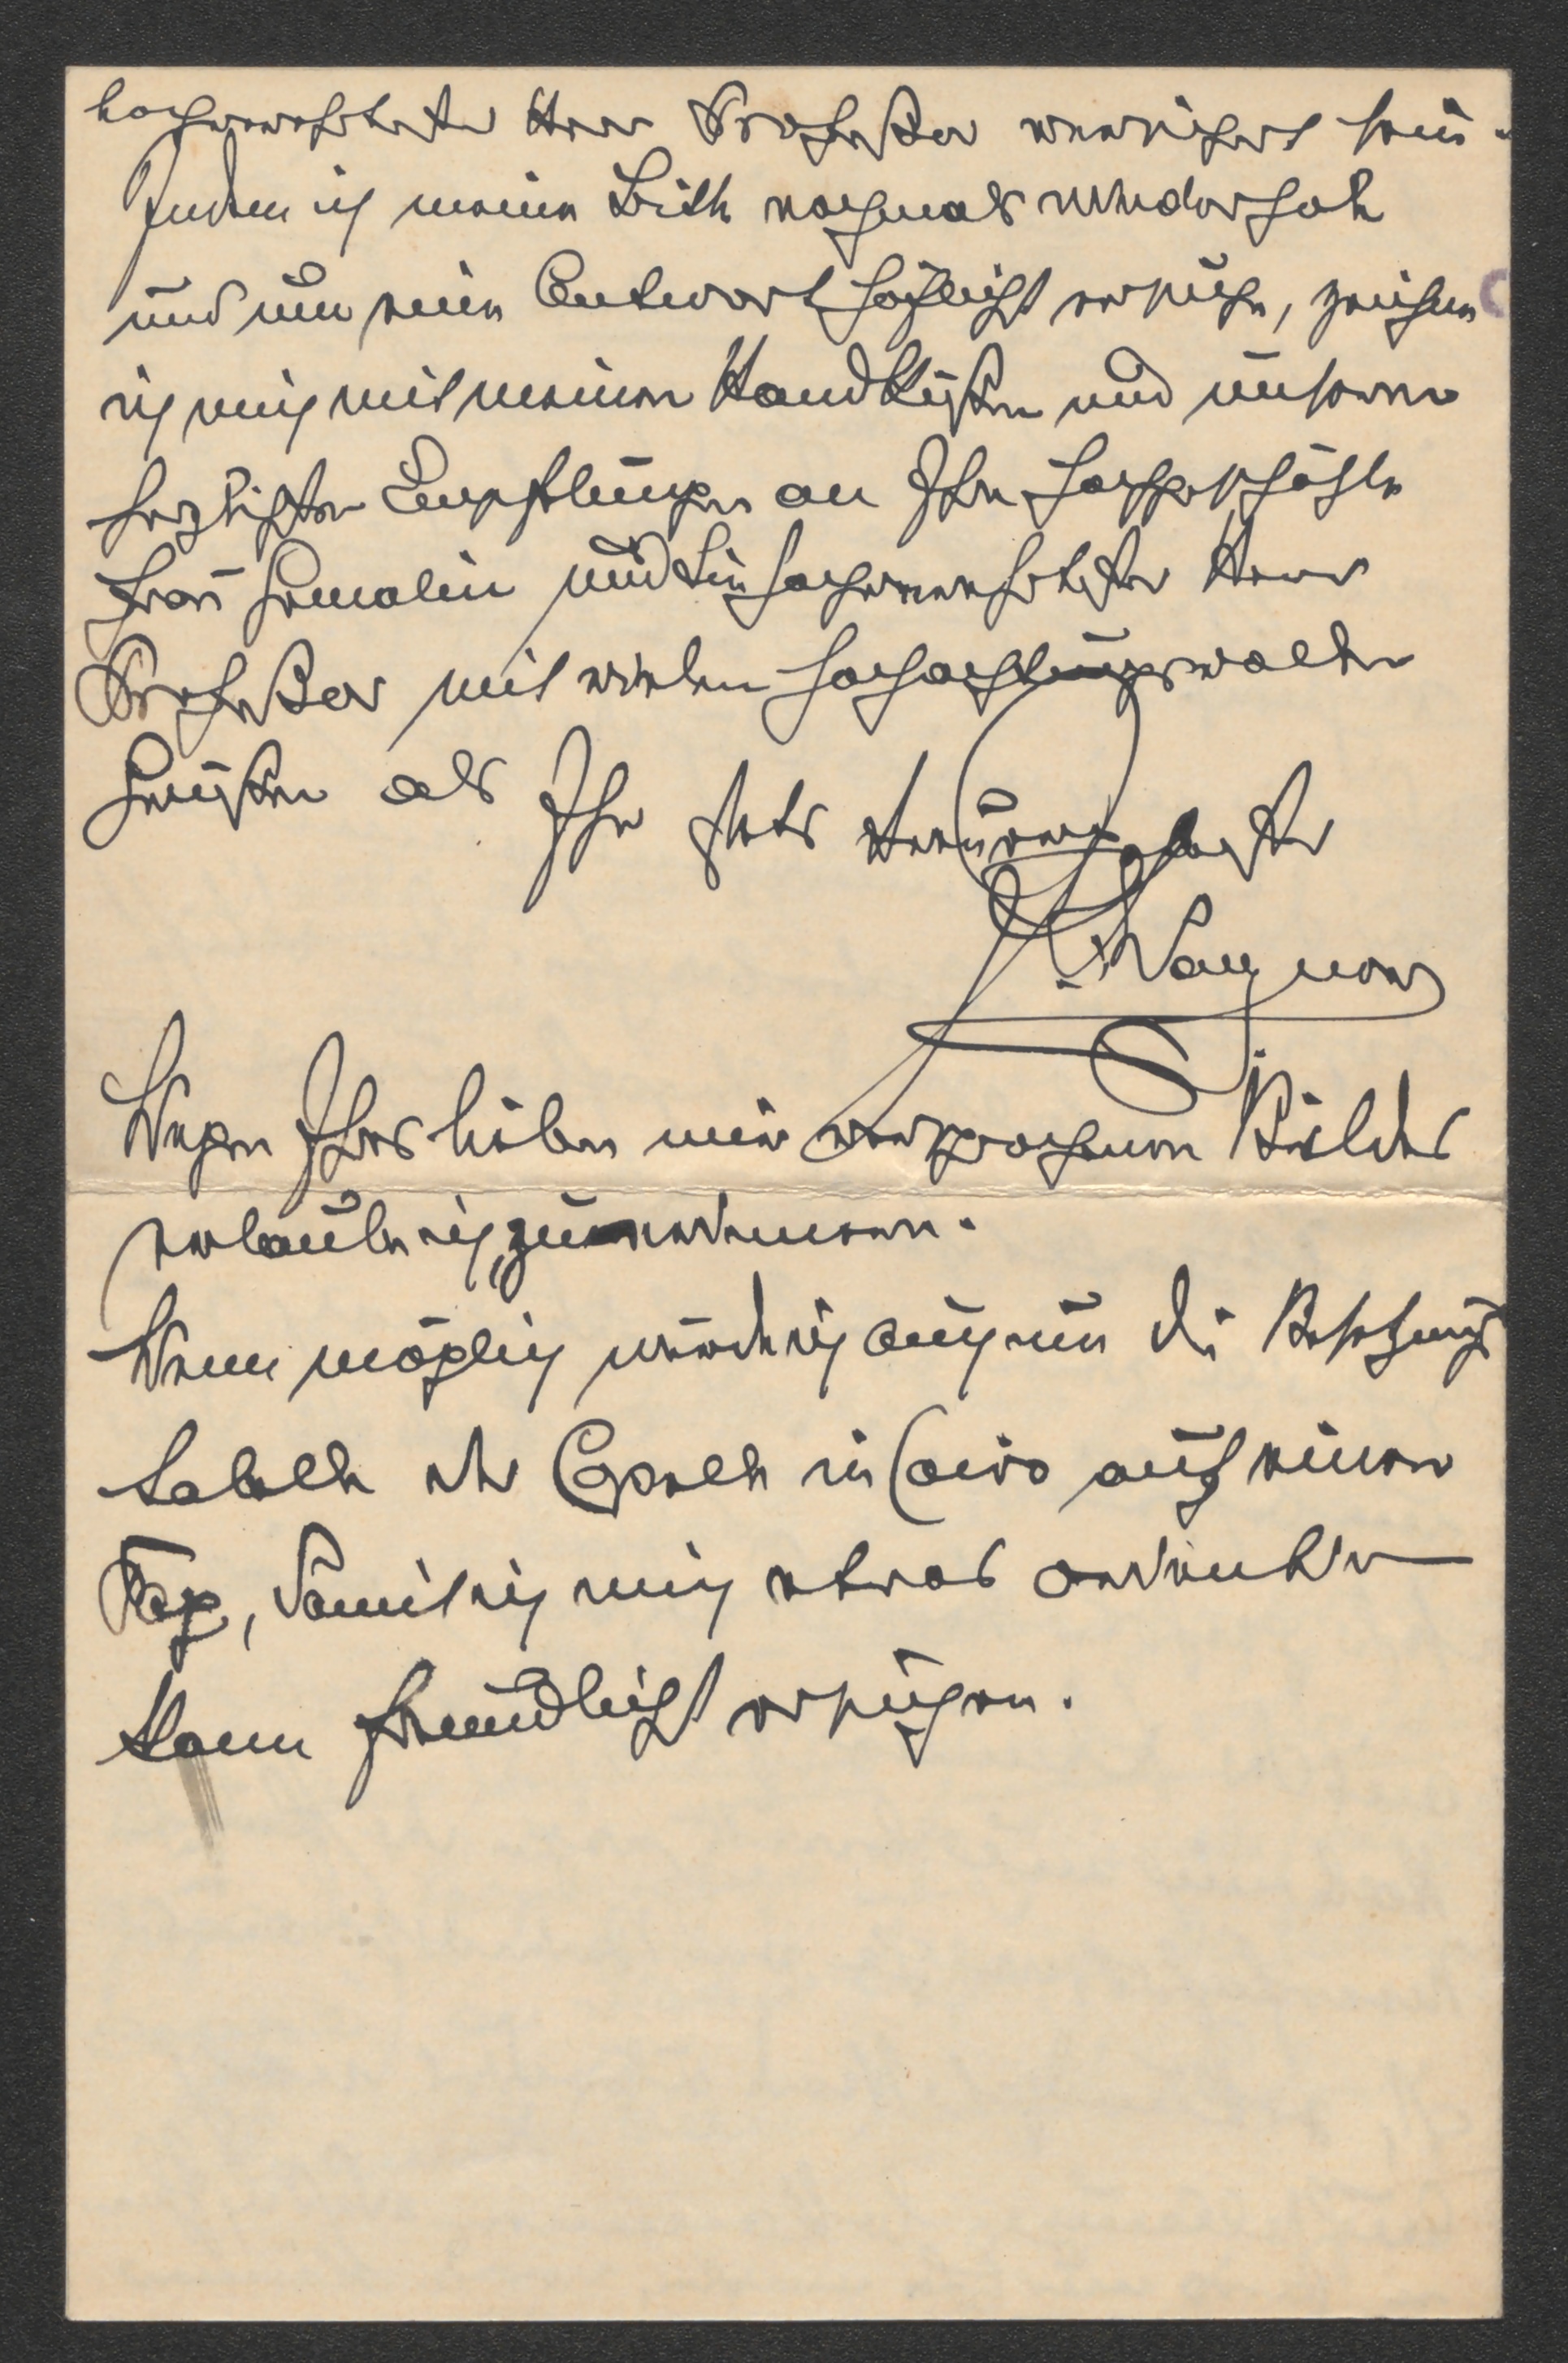 hochverehrtester Herr Professor versichert sein.
Indem ich meine Bitte nochmals wiederhole
und um eine Antwort höflichst ersuche, zeichne
ich mich mit meinen Handküssen und unseren
herzlichsten Empfehlungen an Ihre hochgeschätzte
Frau Gemalin und Sie hochverehrtester Herr
Professor mit vielen hochachtungsvollen
Grüßen als Ihr stets treuergebenster
Wagner
Wegen Ihres lieben mir versprochenen Bildes
erlaube ich zu erinnern.
Wenn möglich würde ich auch um die Besetzungs
tabelle der Capelle in Cairo auf einen
Tag, damit ich mich etwas orientieren
kann freundlichst ersuchen.